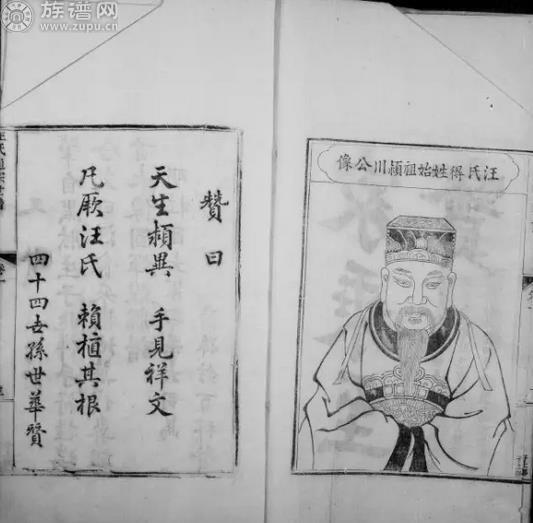 族谱网
www.zupu.cn
汪氏得姓始祖颍川公像
贊曰
天生頴異 手見祥文
凡厥汪氏 賴植其根
四十四世孫世華贊